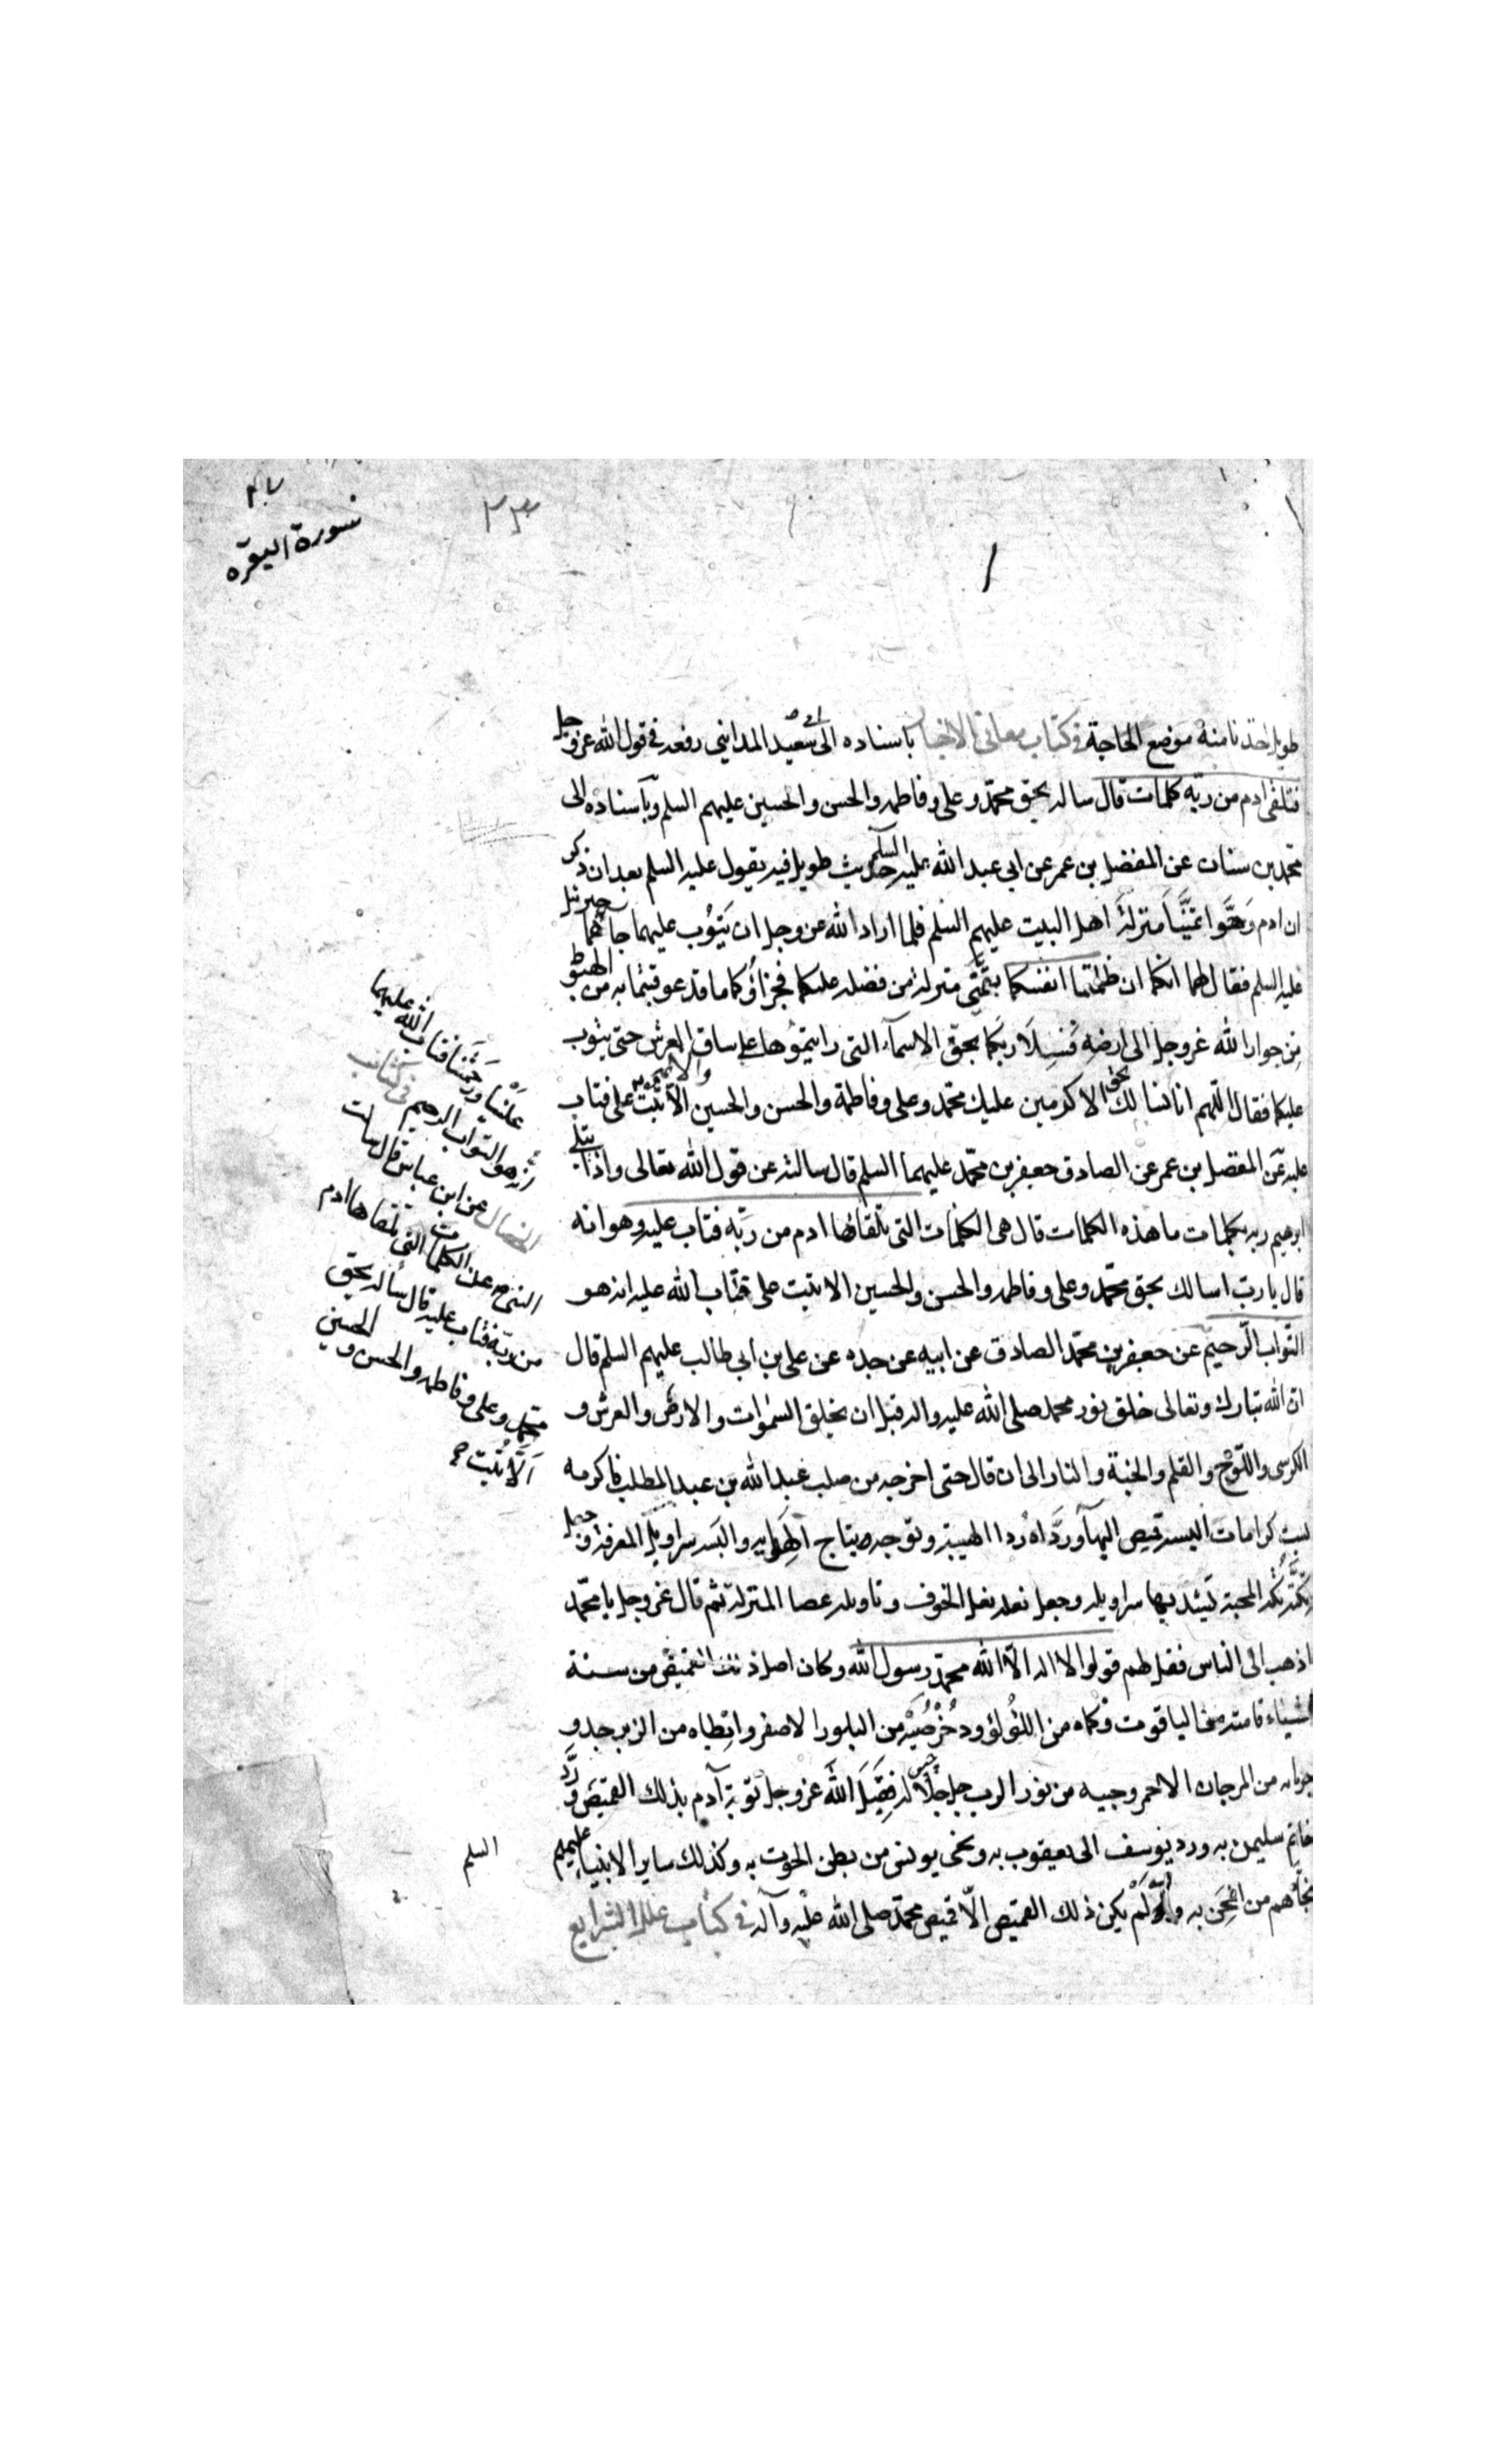 سورة البقرة
٢٣
طويل اخذنا منه موضع الحاجة في كتاب معاني الاخبار باسناده الى ابى سعيد المدايني رفعه في قول الله عز وجل
فتلقى ادم من ربه كلمات قال ساله بحق محمد وعلي وفاطمه والحسن والحسين عليهم السلم وباسناده الى
محمد بن سنان عن المفضل بن عمر عن ابي عبد الله عليه السلم حديث طويل فيه يقول عليه السلم بعد ان ذكر
ان ادم وحوا تمنيا منزلة اهل البيت عليهم السلم فلما اراد الله عز وجل ان يتوب عليهما جاءهما جبرئيل
عليه السلم فقال لهما انكما ان ظلمتما انفسكما بتمني منزلة من فضله عليكما فجزاؤكما ما قد عوقبتما به من الهبوط
من جوار الله عز وجل الى ارضه فسلا ربكما بحق الاسماء التي رايتموها على ساق العرش حتى يتوب
عليكما فقالا اللهم انا نسالك بحق الاكرمين عليك محمد وعلي وفاطمة والحسن والحسين والائمة الا تبت علي فتاب
عليه عن المفضل بن عمر عن الصادق جعفر بن محمد عليهما السلم قال سالته عن قول الله تعالى واذا بتلى
ابرهيم ربه بكلمات ما هذه الكلمات قال هي الكلمات التي تلقاها ادم من ربه فتاب عليه وهو انه
قال يا رب اسالك بحق محمد وعلي وفاطمه والحسن والحسين الا تبت علي فتاب الله عليه انه هو
التواب الرحيم عن جعفر بن محمد الصادق عن ابيه عن جده عن علي بن ابي طالب عليهم السلم قال
ان الله تبارك وتعالى خلق نور محمد صلى الله عليه واله قبل ان يخلق السموات والارض والعرش و
الكرسي واللوح والقلم والجنة والنار الى ان قال حتى اخرجه من صلب عبد الله بن عبد المطلب فاكرمه
بست كرامات البسه قميص البهاء ورداه ردا الهيبة وتوجه بتاج الهدايه والبسه سراويل المعرفة وجعل
تكته تكة المحبة يشد بها سراويله وجعل نعله نعل الخوف وناوله عصا المنزلة ثم قال عز وجل يا محمد
اذهب الى الناس فقل لهم قولوا لا اله الا الله محمد رسول الله وكان اصل ذلك القميص من ستة
اشياء قامته من الياقوت وكماه من اللؤلؤ ودخرصيه من البلور الاصفر وابطاه من الزبرجد و
جربانه من المرجان الاحمر وجيبه من نور الرب جل جلاله فقبل الله عز وجل توبة آدم بذلك القميص ورد
خاتم سليمن به ورد يوسف الى يعقوب به ونجى يونس من بطن الحوت به وكذلك ساير الانبياء عليهم السلم
نجاهم من المحن به ولم يكن ذلك القميص الا قميص محمد صلى الله عليه وآله في كتاب علل الشرايع
علينا ورحمتنا فتاب الله عليهما
انه هو التواب الرحيم في كتاب
الخصال عن ابن عباس قال سالت
النبي ص عن الكلمات التي تلقاها ادم
من ربه فتاب عليه قال ساله بحق
محمد وعلي وفاطمه والحسن والحسين
الا تبت